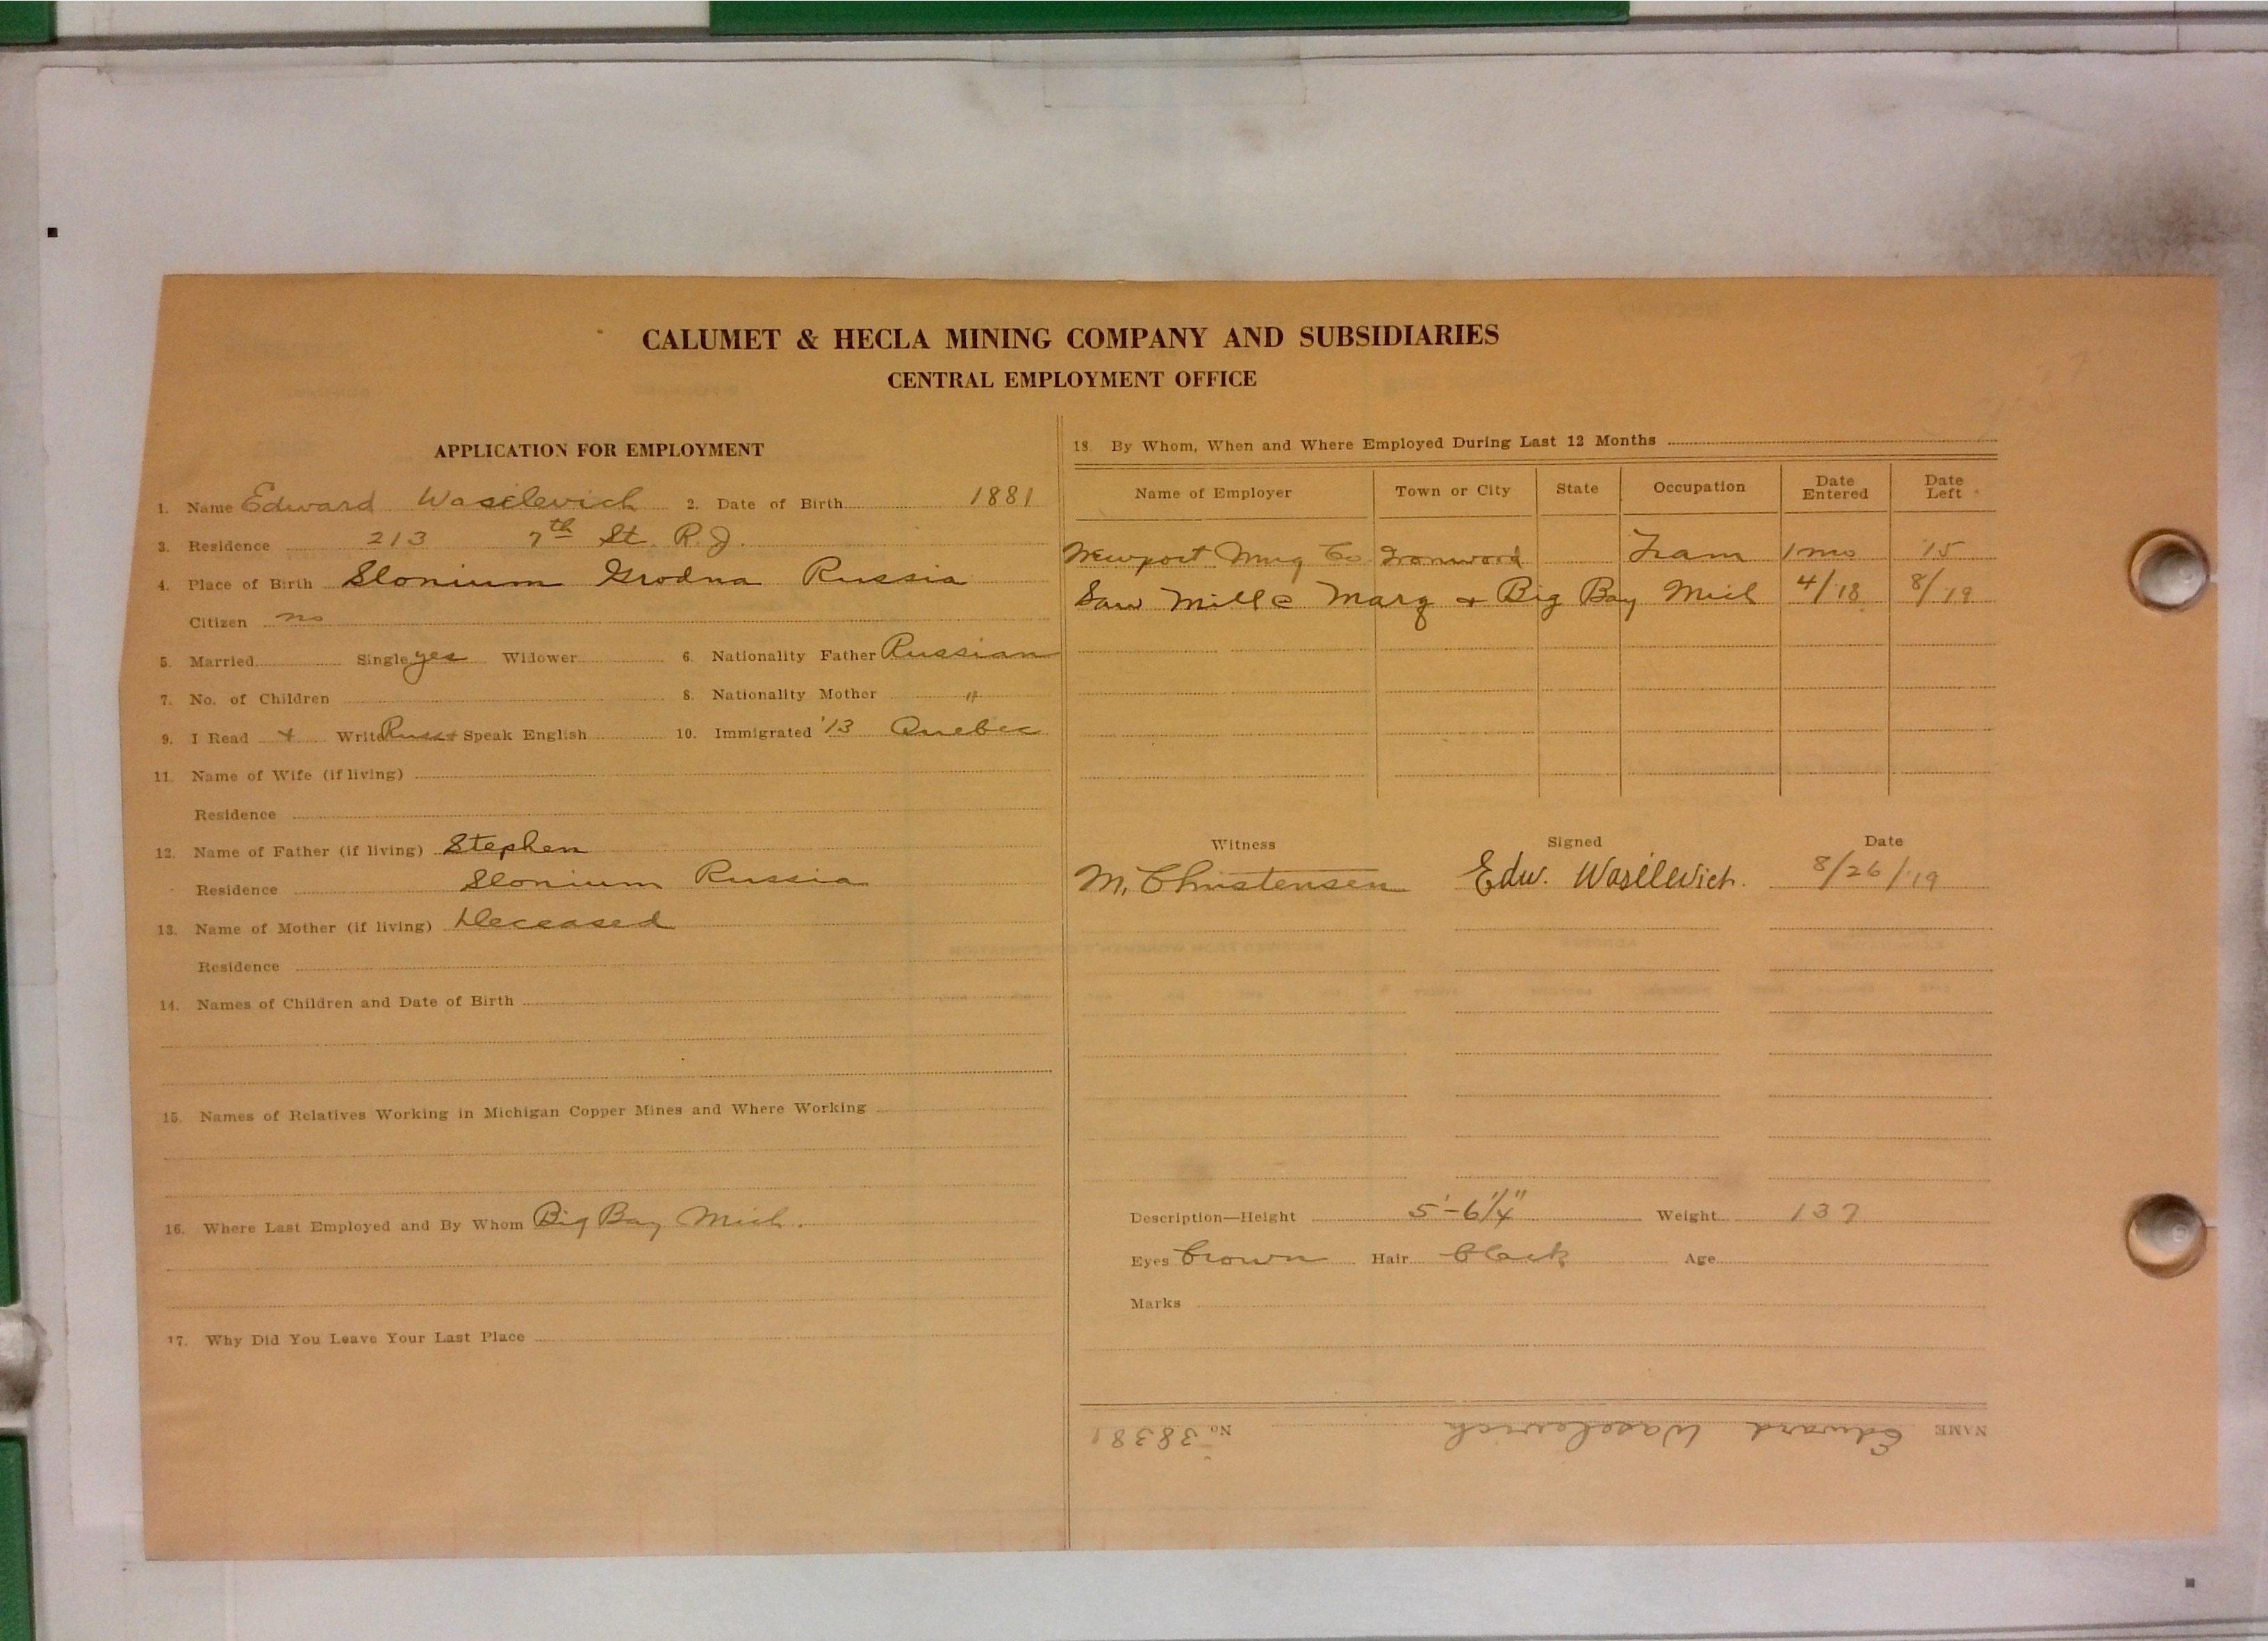 CALUMET & HECLA MINING COMPANY AND SUBSIDIARIES
CENTRAL EMPLOYMENT OFFICE
APPLICATION FOR EMPLOYMENT
1. Name Edward Wasilevich 2. Date of Birth 1881
3. Residence 213 7th St. R.J.
4. Place of Birth Slonium Grodna Russia
Citizen no
5. Married Single yes Widower 6. Nationality Father Russian
7. No. of Children 8. Nationality Mother "
9. I Read + Write Russ + Speak English 10. Immigrated '13 Quebec
11. Name of Wife (if living)
Residence
12. Name of Father (if living) Stephen
Residence Slonium Russia
13. Name of Mother (if living) Deceased
Residence
14. Names of Children and Date of Birth
15. Names of Relatives Working in Michigan Copper Mines and Where Working
16. Where Last Employed and By Whom Big Bay Mich.
17. Why Did You Leave Your Last Place
18. By Whom, When and Where Employed During Last 12 Months
Name of Employer Town or City State Occupation Date Entered Date Left
Newport Mng Co Ironwood Tram 1 mo '15
Saw Mill @ Marq + Big Bay Mich 4/18 8/19
Witness Signed Date
M. Christensen Edw. Wasilevich. 8/26/19
Description—Height 5'-6 1/4" Weight 137
Eyes brown Hair black Age
Marks
NAME Edward Waselevich No. 38381